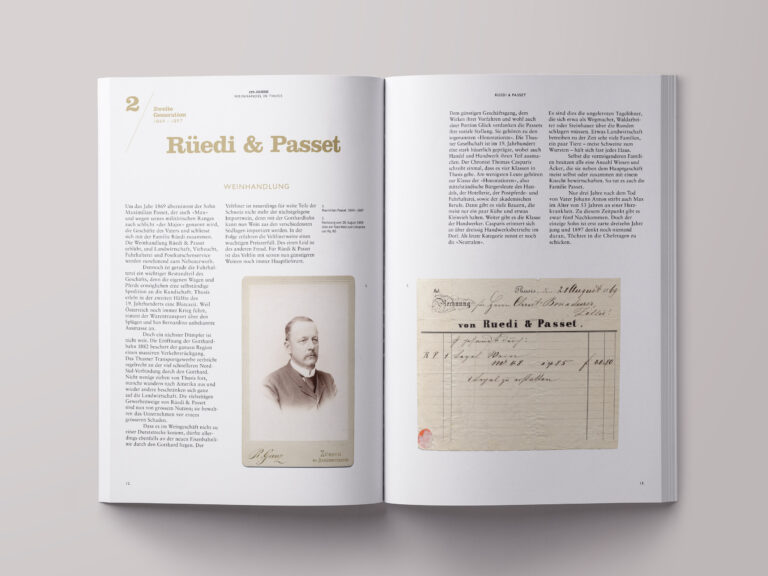 125 JAHRE
WEINHANDEL IN THUSIS
2
Zweite
Generation
1869 – 1897
Rüedi & Passet
WEINHANDLUNG
Um das Jahr 1869 übernimmt der Sohn
Maximilian Passet, der auch «Max»
und wegen seines militärischen Ranges
auch schlicht «der Major» genannt wird,
die Geschäfte des Vaters und schliesst
sich mit der Familie Rüedi zusammen.
Die Weinhandlung Rüedi & Passet
erblüht, und Landwirtschaft, Viehzucht,
Fuhrhalterei und Postkutschenservice
werden zunehmend zum Nebenerwerb.
Dennoch ist gerade die Fuhrhal-
terei ein wichtiger Bestandteil des
Geschäfts, denn die eigenen Wagen und
Pferde ermöglichen eine selbständige
Spedition an die Kundschaft. Thusis
erlebt in der zweiten Hälfte des
19. Jahrhunderts eine Blütezeit. Weil
Österreich noch immer Krieg führt,
nimmt der Warentransport über den
Splügen und San Bernardino unbekannte
Ausmasse an.
Doch ein nächster Dämpfer ist
nicht weit. Die Eröffnung der Gotthard-
bahn 1882 beschert der ganzen Region
einen massiven Verkehrsrückgang.
Das Thusner Transportgewerbe zerbricht
regelrecht an der viel schnelleren Nord-
Süd-Verbindung durch den Gotthard.
Nicht wenige ziehen von Thusis fort,
manche wandern nach Amerika aus und
wieder andere beschränken sich ganz
auf die Landwirtschaft. Die vielseitigen
Gewerbezweige von Rüedi & Passet
sind nun von grossem Nutzen; sie bewah-
ren das Unternehmen vor einem
grösseren Schaden.
Dass es im Weingeschäft nicht zu
einer Durststrecke kommt, dürfte aller-
dings ebenfalls an der neuen Eisenbahnli-
nie durch den Gotthard liegen. Der
Veltliner ist neuerdings für weite Teile der
Schweiz nicht mehr der nächstgelegene
Importwein, denn mit der Gotthardbahn
kann nun Wein aus den verschiedensten
Südlagen importiert werden. In der
Folge erfahren die Veltlinerweine einen
wuchtigen Preiszerfall. Des einen Leid ist
des anderen Freud: Für Rüedi & Passet
ist das Veltlin mit seinen nun günstigeren
Weinen noch immer Hauptlieferant.
Maximilian Passet, 1844 – 1897
Rechnung vom 28. August 1869
R. Ganz
ZÜRICH
12
RÜEDI & PASSET
Dem günstigen Geschäftsgang, dem
Wirken ihrer Vorfahren und wohl auch
einer Portion Glück verdanken die Passets
ihre soziale Stellung. Sie gehören zu den
sogenannten «Honoratioren». Die Thus-
ner Gesellschaft ist im 19. Jahrhundert
eine stark bäuerlich geprägte, wobei auch
Handel und Handwerk ihren Teil ausma-
chen. Der Chronist Thomas Casparis
schreibt einmal, dass es vier Klassen in
Thusis gebe. Am wenigsten Leute gehören
zur Klasse der «Honoratioren», also
mittelständische Bürgersleute des Han-
dels, der Hotellerie, der Postpferde- und
Fuhrhalterei, sowie der akademischen
Berufe. Dann gibt es viele Bauern, die
meist nur ein paar Kühe und etwas
Kleinvieh haben. Weiter gibt es die Klasse
der Handwerker. Casparis erinnert sich
an über dreissig Handwerksbetriebe im
Dorf. Als letzte Kategorie nennt er noch
die «Neutralen».
Es sind dies die ungelernten Taglöhner,
die sich etwa als Wegmacher, Waldarbei-
ter oder Steinhauer über die Runden
schlagen müssen. Etwas Landwirtschaft
betreiben zu der Zeit sehr viele Familien,
ein paar Tiere – meist Schweine zum
Wursten – hält sich fast jedes Haus.
Selbst die vermögenderen Famili-
en besitzen alle eine Anzahl Wiesen und
Äcker, die sie neben dem Hauptgeschäft
meist selbst oder zusammen mit einem
Knecht bewirtschaften. So tut es auch die
Familie Passet.
Nur drei Jahre nach dem Tod
von Vater Johann Anton stirbt auch Max
im Alter von 53 Jahren an einer Herz-
krankheit. Zu diesem Zeitpunkt gibt es
zwar fünf Nachkommen. Doch der
einzige Sohn ist erst zarte dreizehn Jahre
jung und 1897 denkt noch niemand
daran, Töchter in die Chefetagen zu
schicken.
Thusis, 28 August 1869
Rechnung für Herrn Christ
von Ruedi & Passet.
13